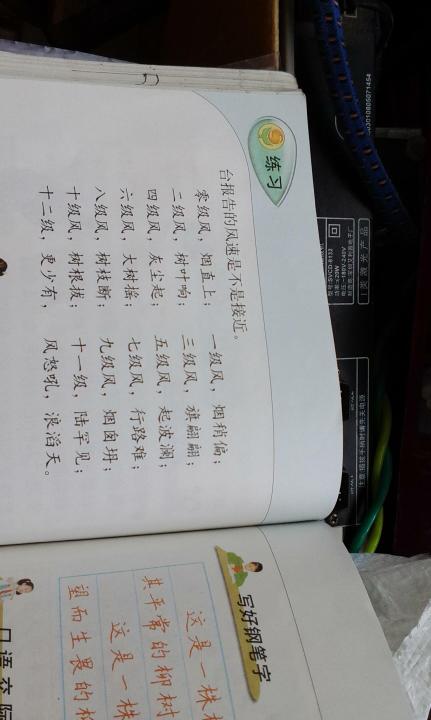 练习
台报告的风速是不是接近。
零级风，烟直上； 一级风，烟稍偏；
二级风，树叶响； 三级风，旗翩翩；
四级风，灰尘起； 五级风，起波澜；
六级风，大树摇； 七级风，行路难；
八级风，树枝断； 九级风，烟囱坍；
十级风，树根拔； 十一级，陆罕见；
十二级，更少有， 风怒吼，浪滔天。
写好钢笔字
这是一株
其平常的柳树
这是一株
望而生畏的
口语交际
3010805071454
I类激光产品
型号:SVCD-8132
注意:接拔手柄时请先关电源